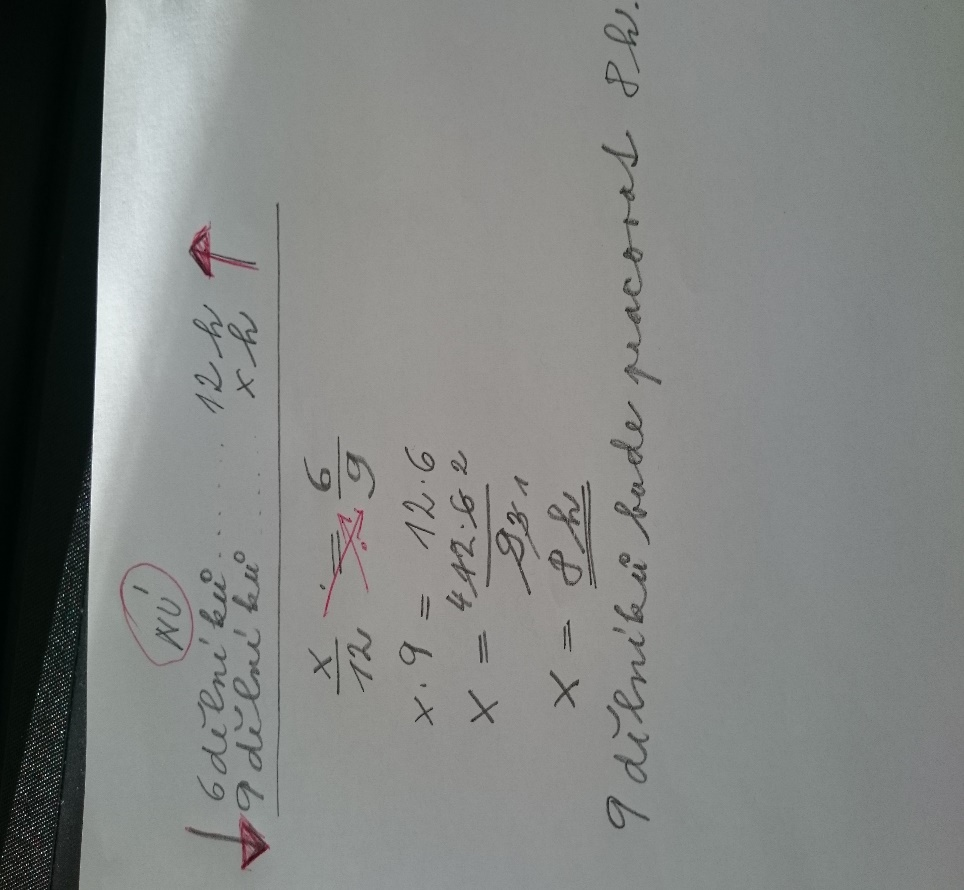 NÚ
6 dělníků ..... 12 h
9 dělníků ..... x h
x/12 = 6/9
x · 9 = 12 · 6
x = ⁴12·6 ² / 9 3 1
x = 8 h
9 dělníků bude pracovat 8 h.